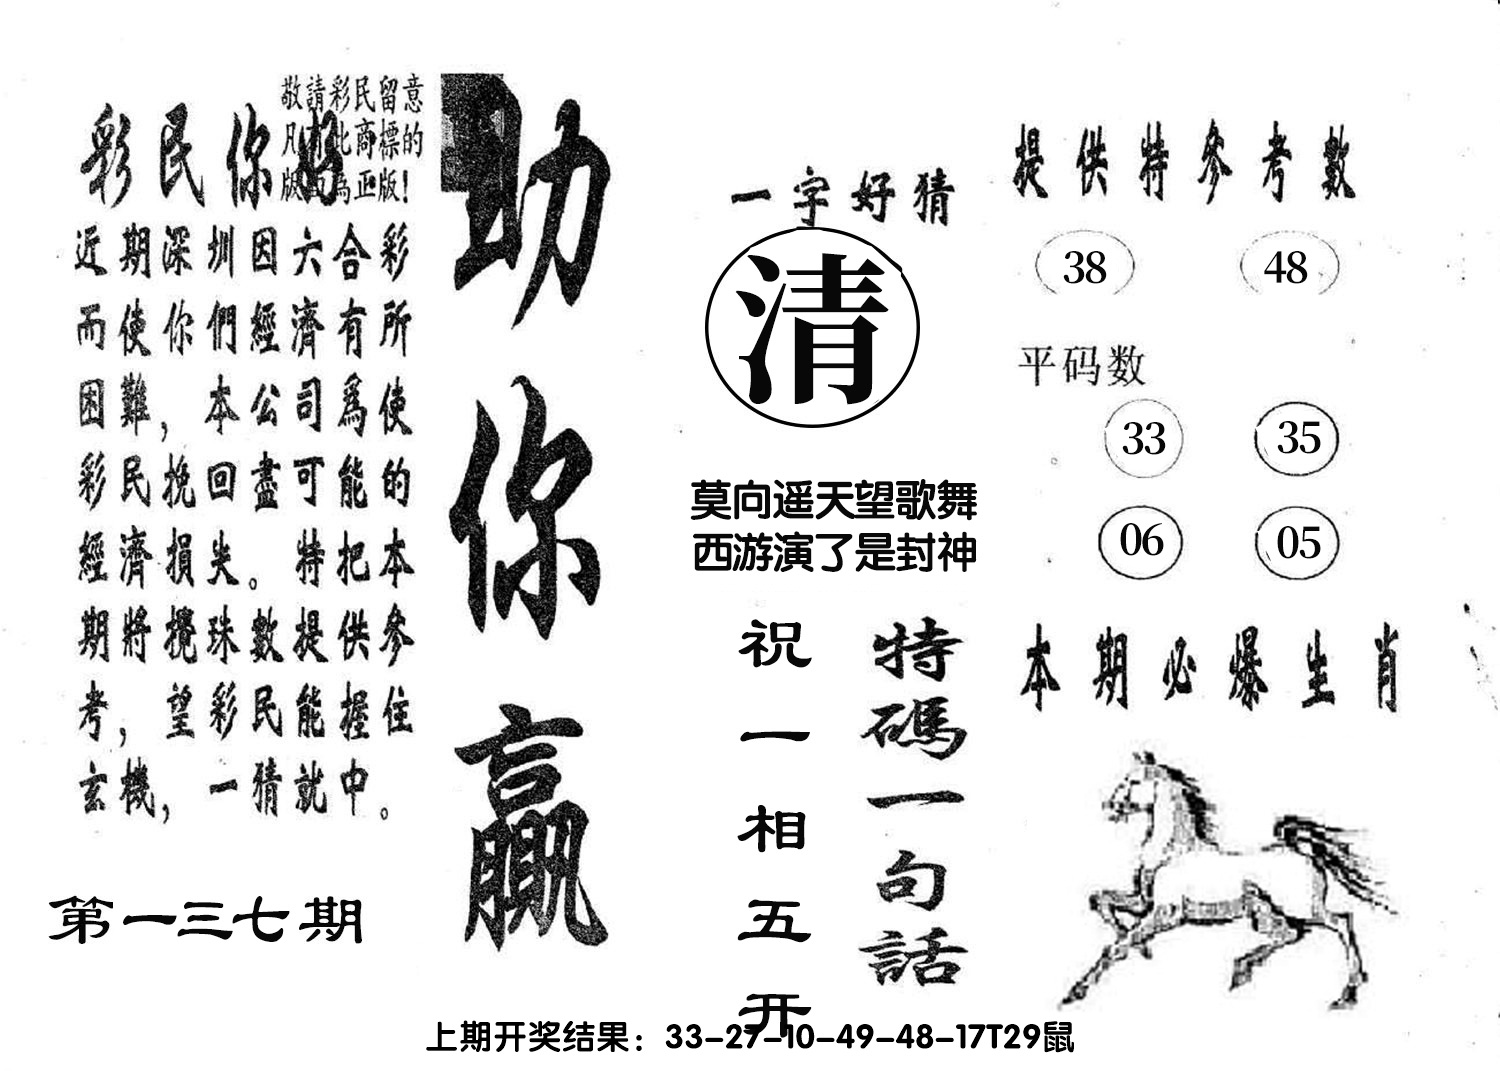 敬請彩民留意
凡有此商標的
版面為正版!
彩民你好
近期深圳因六合彩
而使你們經濟有所
困難，本公司爲使
彩民挽回盡可能的
經濟損失。特把本
期將攪珠數提供參
考，望彩民能握住
玄機，一猜就中。
第一三七期
助你贏
一字好猜
清
莫向遥天望歌舞
西游演了是封神
特碼一句話
祝一相五开
提供特參考數
38 48
平码数
33 35
06 05
本期必爆生肖
上期开奖结果：33-27-10-49-48-17T29鼠